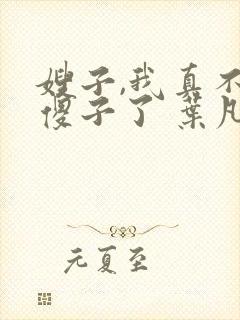 嫂子,我真不
傻子了 葉凡
元夏至